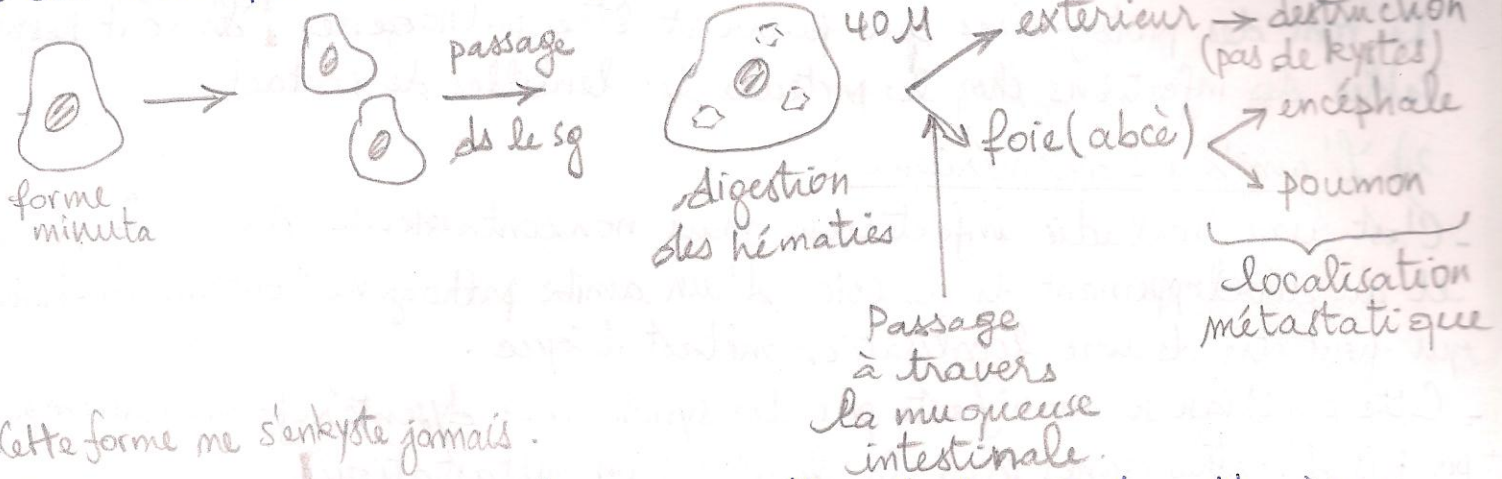 forme
minuta
passage
ds le sg
40 M
digestion
des hématies
extérieur → destruction
(pas de kystes)
foie (abcè)
encéphale
poumon
localisation
métastatique
Passage
à travers
la muqueuse
intestinale.
Cette forme ne s'enkyste jamais.